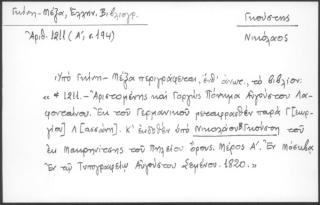 Γκίνη - Μέξα, Ἑλλην. Βιβλιογρ.
Γκούστης
Ἀριθ. 1211 (Α', σ. 194)
Νικόλαος
Ὑπὸ Γκίνη - Μέξα περιγράφεται, ἔνθ' ἀνωτ., τὸ βιβλίον:
«* 1211. - Ἀριστομένης καὶ Γοργὼ Πόνημα Αὐγούστου Λα-
φονταίνου. Ἐκ τοῦ Γερμανικοῦ μεταφρασθὲν παρὰ Γ[εωρ-
γίου] Λ[ασσάνη]. Κ' ἐκδοθὲν ὑπὸ Νικολάου Γκούστη τοῦ
ἐκ Μακρηνίτσης τοῦ Πηλείου ὄρους. Μέρος Α'. Ἐν Μόσχᾳ
Ἐν τῷ Τυπογραφείῳ Αὐγούστου Σεμένου. 1820.»